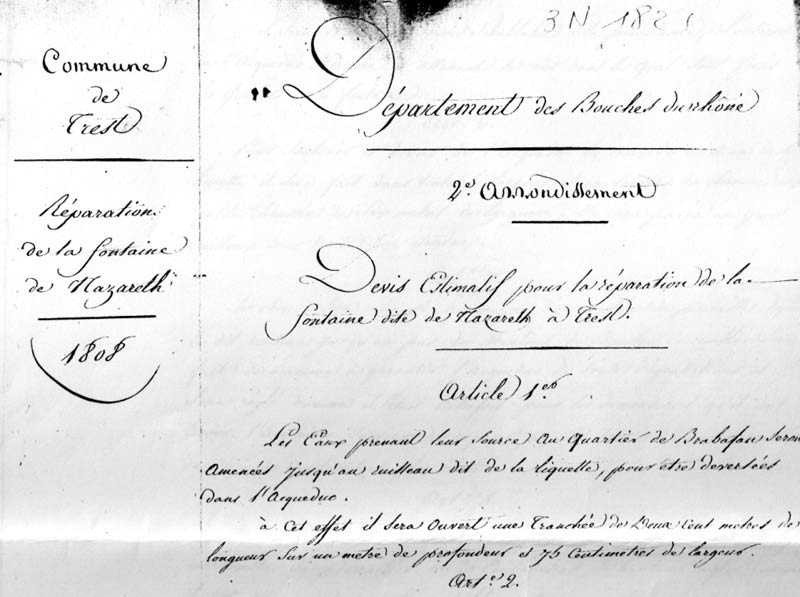 3 N 182 1
Commune
de
Trest
Réparations
de la fontaine
de Nazareth
1808
Département des Bouches du rhône
2e. arrondissement
Devis Estimatif pour la réparation de la
fontaine dite de Nazareth à Trest.
Article 1er
Les Eaux prenant leur source au quartier de Brabafan seront
amenées jusqu'au ruisseau dit de la tiquelle, pour être deversées
dans l'acqueduc.
à Cet effet il sera ouvert une Tranchée de Deux Cent metres de
longueur sur un metre de profondeur et 75 Centimetres de largeur.
Art.e 2.